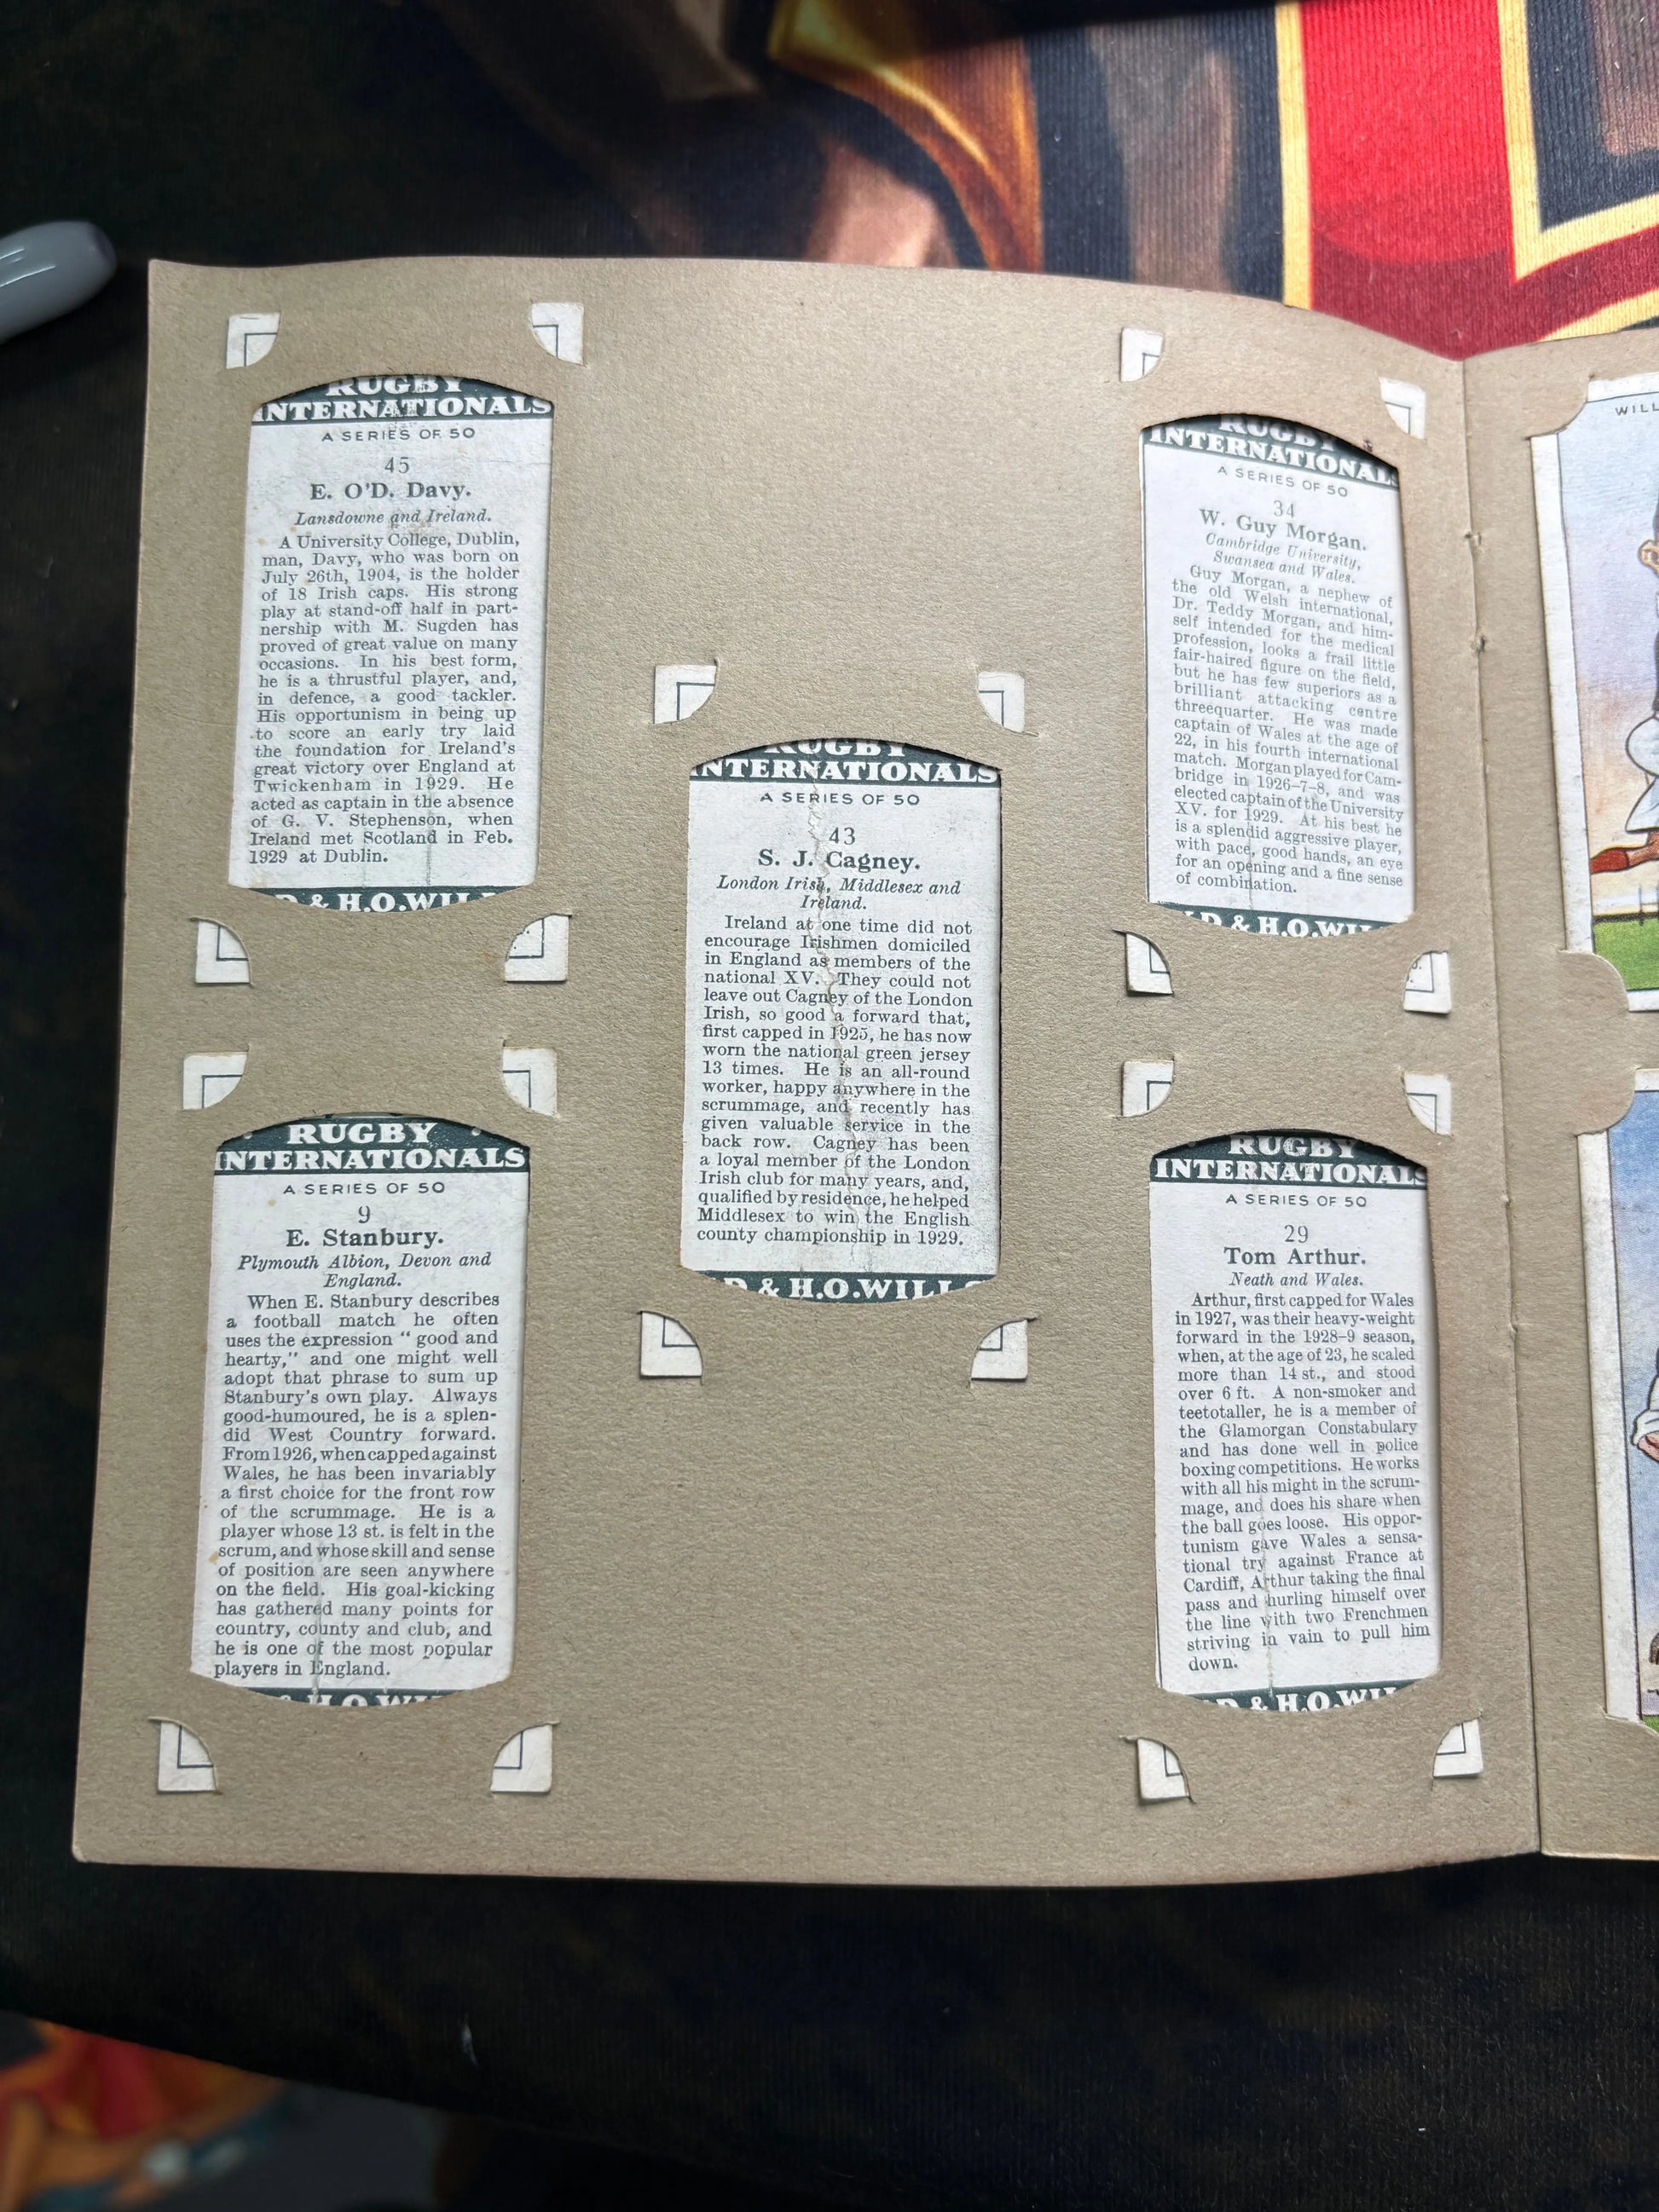 RUGBY
INTERNATIONALS
A SERIES OF 50
45
E. O'D. Davy.
Lansdowne and Ireland.
A University College, Dublin,
man, Davy, who was born on
July 26th, 1904, is the holder
of 18 Irish caps. His strong
play at stand-off half in part-
nership with M. Sugden has
proved of great value on many
occasions. In his best form,
he is a thrustful player, and,
in defence, a good tackler.
His opportunism in being up
to score an early try laid
the foundation for Ireland's
great victory over England at
Twickenham in 1929. He
acted as captain in the absence
of G. V. Stephenson, when
Ireland met Scotland in Feb.
1929 at Dublin.
D & H.O.WIL
RUGBY
INTERNATIONALS
A SERIES OF 50
9
E. Stanbury.
Plymouth Albion, Devon and
England.
When E. Stanbury describes
a football match he often
uses the expression "good and
hearty," and one might well
adopt that phrase to sum up
Stanbury's own play. Always
good-humoured, he is a splen-
did West Country forward.
From 1926, when capped against
Wales, he has been invariably
a first choice for the front row
of the scrummage. He is a
player whose 13 st. is felt in the
scrum, and whose skill and sense
of position are seen anywhere
on the field. His goal-kicking
has gathered many points for
country, county and club, and
he is one of the most popular
players in England.
& H.O.WI
RUGBY
INTERNATIONALS
A SERIES OF 50
43
S. J. Cagney.
London Irish, Middlesex and
Ireland.
Ireland at one time did not
encourage Irishmen domiciled
in England as members of the
national XV. They could not
leave out Cagney of the London
Irish, so good a forward that,
first capped in 1925, he has now
worn the national green jersey
13 times. He is an all-round
worker, happy anywhere in the
scrummage, and recently has
given valuable service in the
back row. Cagney has been
a loyal member of the London
Irish club for many years, and,
qualified by residence, he helped
Middlesex to win the English
county championship in 1929.
D & H.O.WILLS
RUGBY
INTERNATIONALS
A SERIES OF 50
34
W. Guy Morgan.
Cambridge University,
Swansea and Wales.
Guy Morgan, a nephew of
the old Welsh international,
Dr. Teddy Morgan, and him-
self intended for the medical
profession, looks a frail little
fair-haired figure on the field,
but he has few superiors as a
brilliant attacking centre
threequarter. He was made
captain of Wales at the age of
22, in his fourth international
match. Morgan played for Cam-
bridge in 1926-7-8, and was
elected captain of the University
XV. for 1929. At his best he
is a splendid aggressive player,
with pace, good hands, an eye
for an opening and a fine sense
of combination.
D & H.O.WIL
RUGBY
INTERNATIONALS
A SERIES OF 50
29
Tom Arthur.
Neath and Wales.
Arthur, first capped for Wales
in 1927, was their heavy-weight
forward in the 1928-9 season,
when, at the age of 23, he scaled
more than 14 st., and stood
over 6 ft. A non-smoker and
teetotaller, he is a member of
the Glamorgan Constabulary
and has done well in police
boxing competitions. He works
with all his might in the scrum-
mage, and does his share when
the ball goes loose. His oppor-
tunism gave Wales a sensa-
tional try against France at
Cardiff, Arthur taking the final
pass and hurling himself over
the line with two Frenchmen
striving in vain to pull him
down.
D & H.O.WIL
WILL